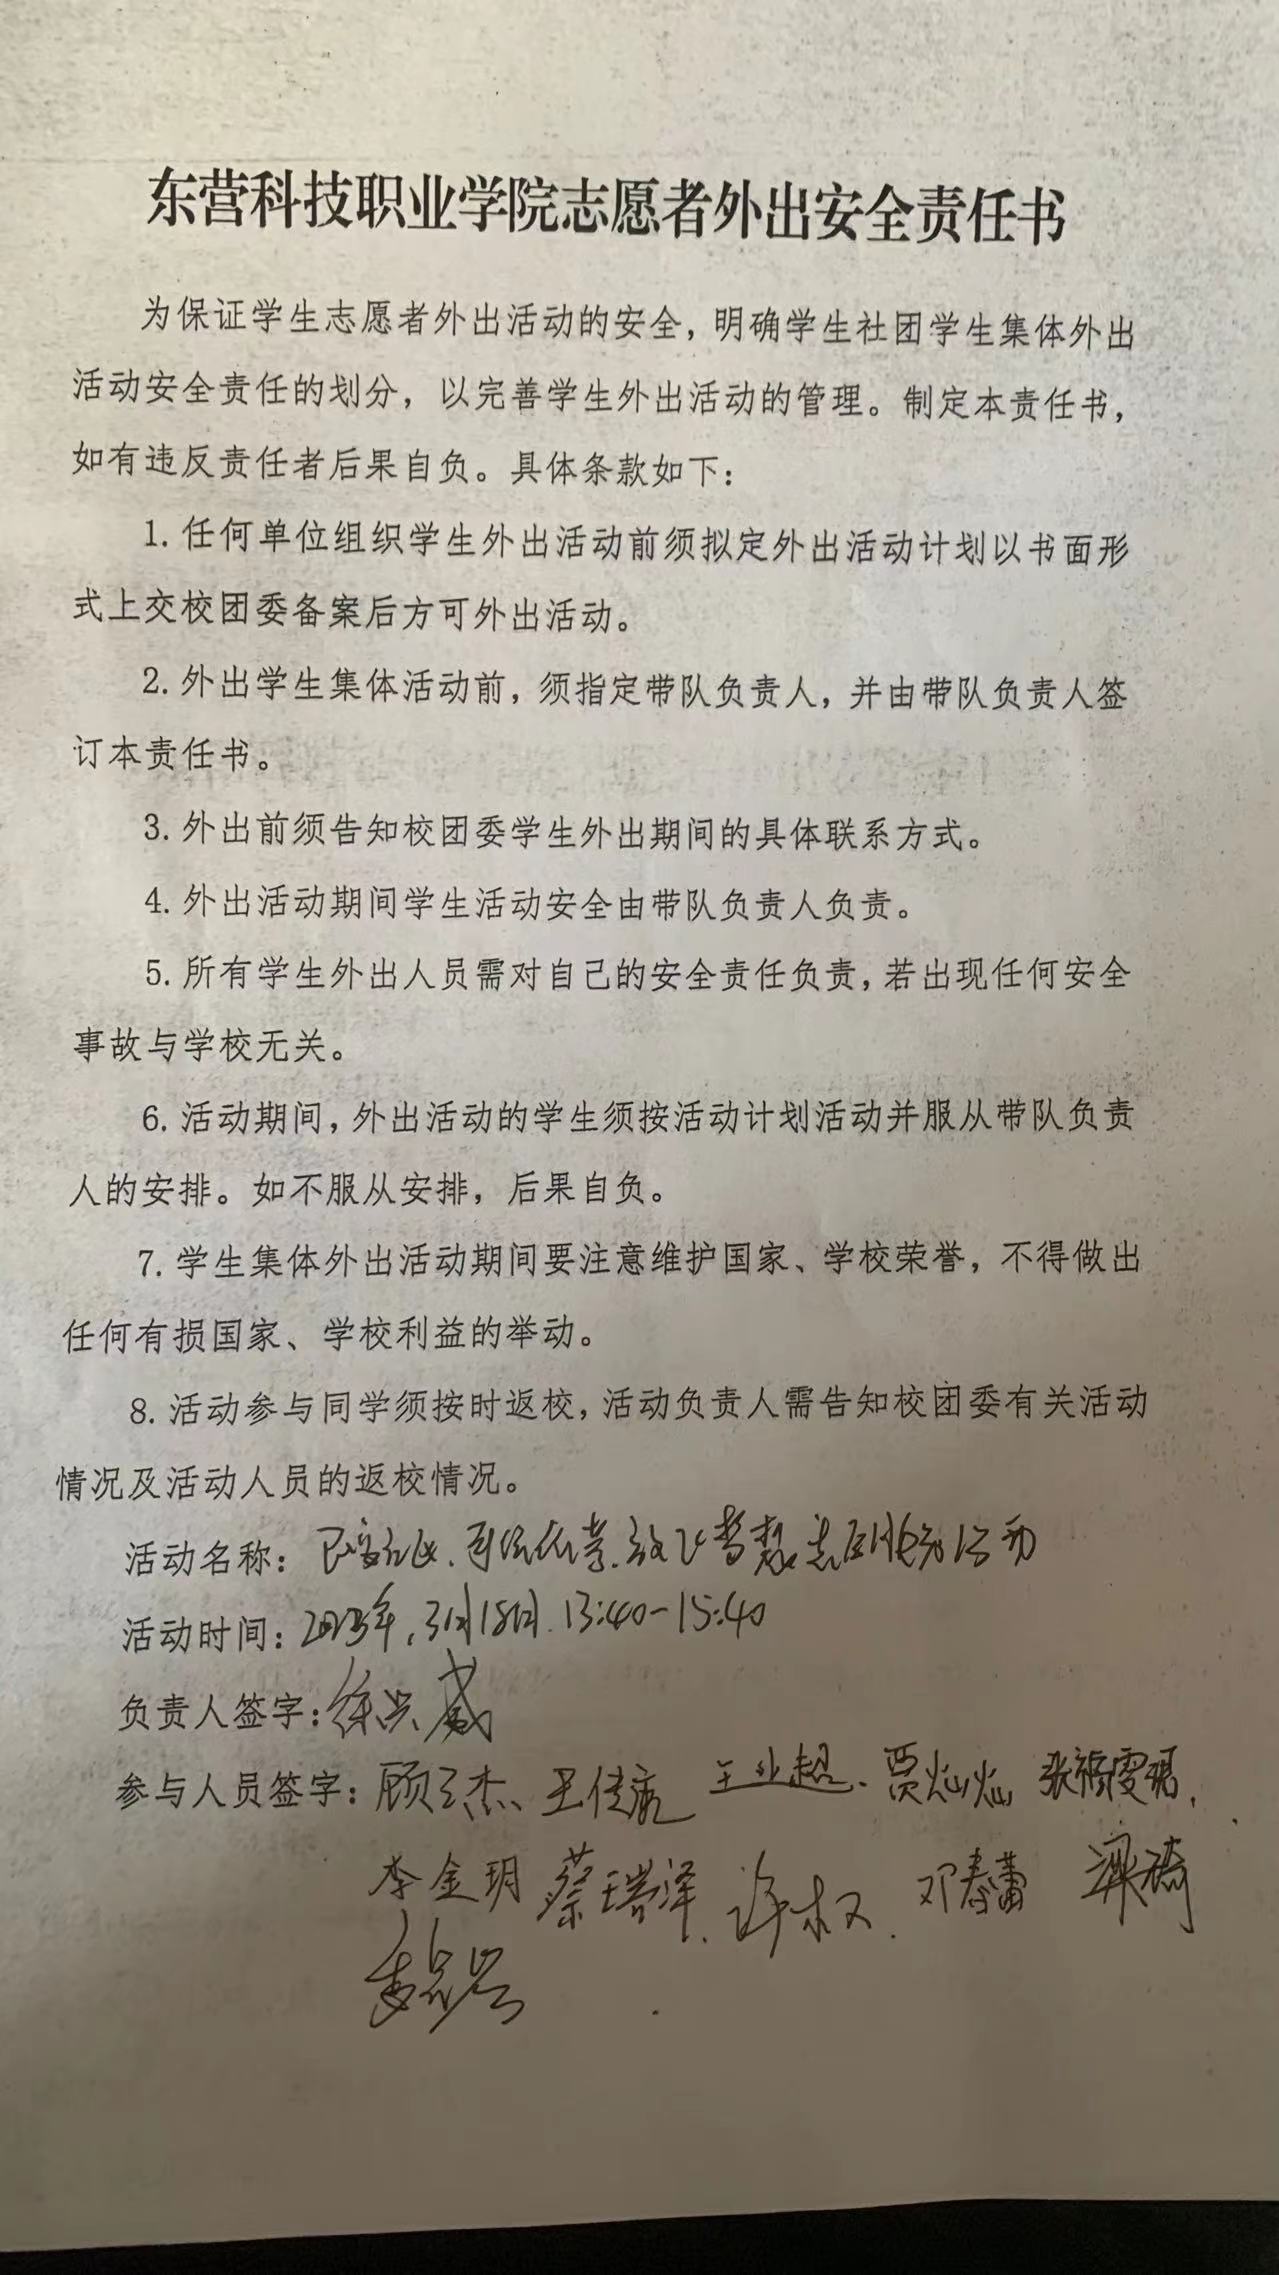 东营科技职业学院志愿者外出安全责任书
为保证学生志愿者外出活动的安全，明确学生社团学生集体外出
活动安全责任的划分，以完善学生外出活动的管理。制定本责任书，
如有违反责任者后果自负。具体条款如下：
1.任何单位组织学生外出活动前须拟定外出活动计划以书面形
式上交校团委备案后方可外出活动。
2.外出学生集体活动前，须指定带队负责人，并由带队负责人签
订本责任书。
3.外出前须告知校团委学生外出期间的具体联系方式。
4.外出活动期间学生活动安全由带队负责人负责。
5.所有学生外出人员需对自己的安全责任负责，若出现任何安全
事故与学校无关。
6.活动期间，外出活动的学生须按活动计划活动并服从带队负责
人的安排。如不服从安排，后果自负。
7.学生集体外出活动期间要注意维护国家、学校荣誉，不得做出
任何有损国家、学校利益的举动。
8.活动参与同学须按时返校，活动负责人需告知校团委有关活动
情况及活动人员的返校情况。
活动名称：
活动时间：2023年.3月18日.13:40-15:40
负责人签字：徐兴威
参与人员签字：王业超、贾灿灿
李金玥 蔡瑞泽. 许权. 邓春蕾